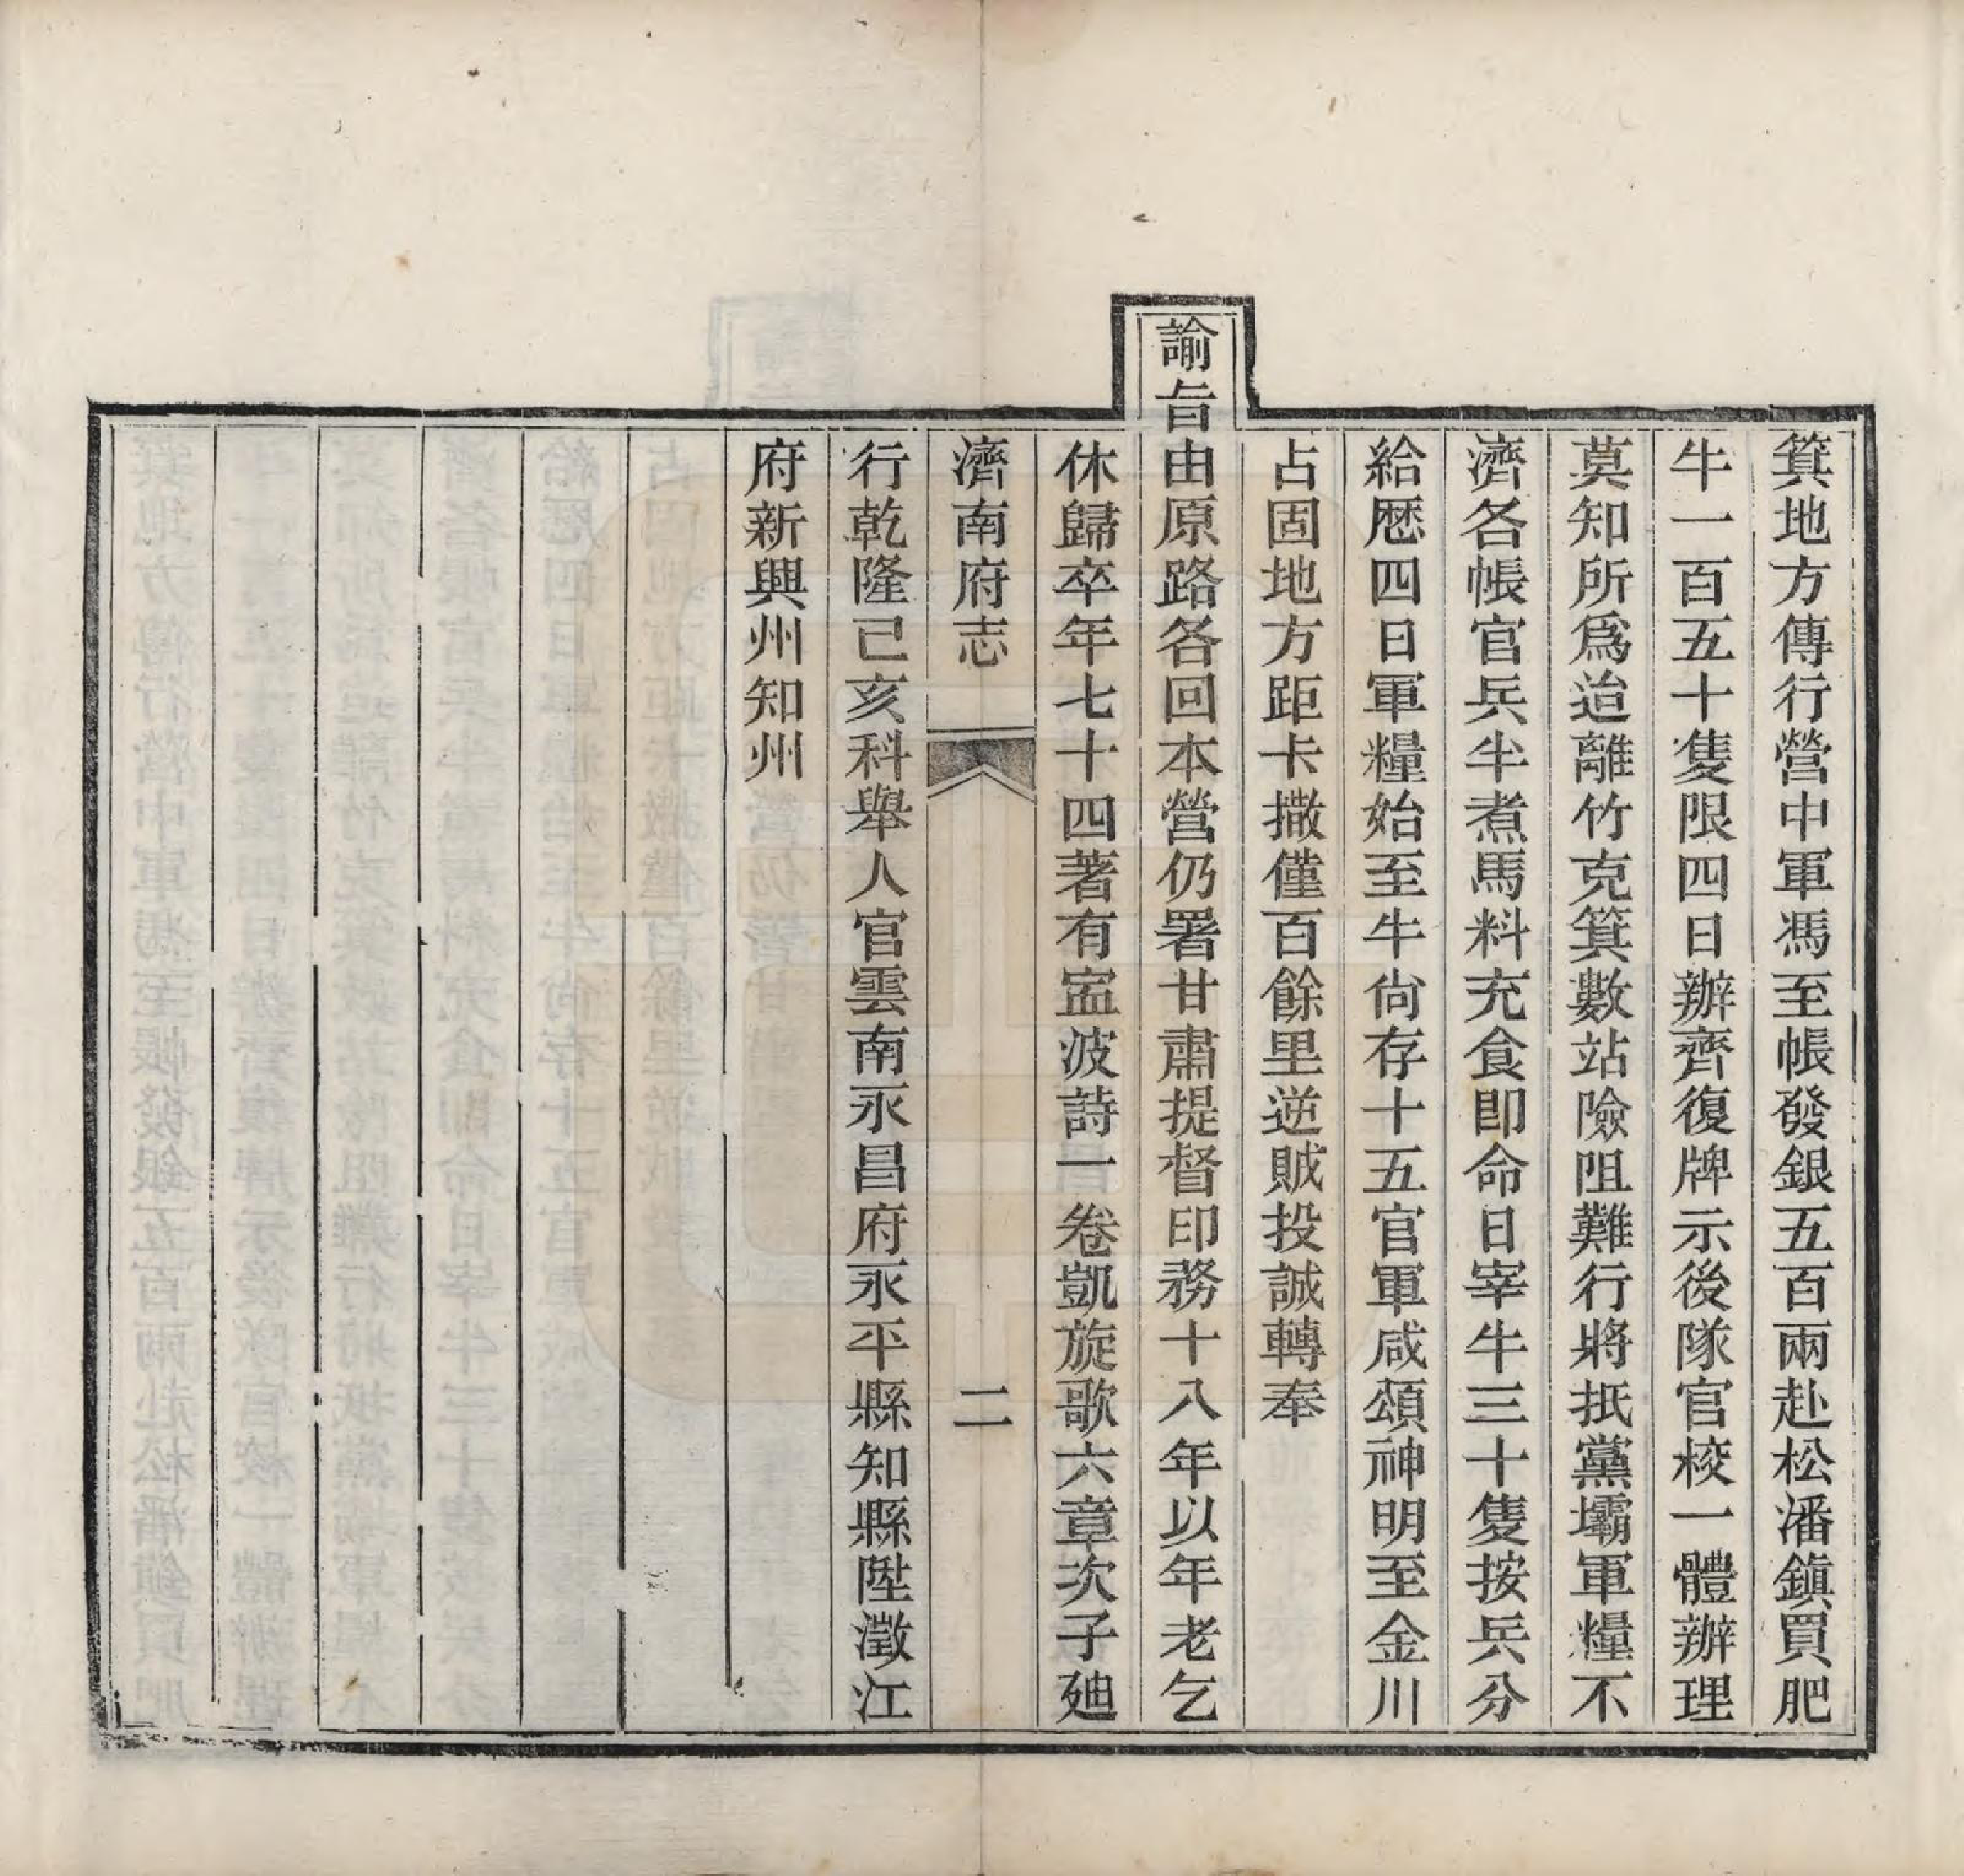 箕地方傳行營中軍馮至帳發銀五百兩赴松潘鎭買肥
牛一百五十隻限四日辦齊復牌示後隊官校一體辦理
莫知所爲迨離竹克箕數站險阻難行將抵黨壩軍糧不
濟各帳官兵半煮馬料充食卽命日宰牛三十隻按兵分
給歷四日軍糧始至牛尙存十五官軍咸頌神明至金川
占固地方距卡撒僅百餘里逆賊投誠轉奉
諭旨由原路各回本營仍署甘肅提督印務十八年以年老乞
休歸卒年七十四著有寍波詩一卷凱旋歌六章次子廸
濟南府志 二
行乾隆己亥科舉人官雲南永昌府永平縣知縣陞澂江
府新興州知州